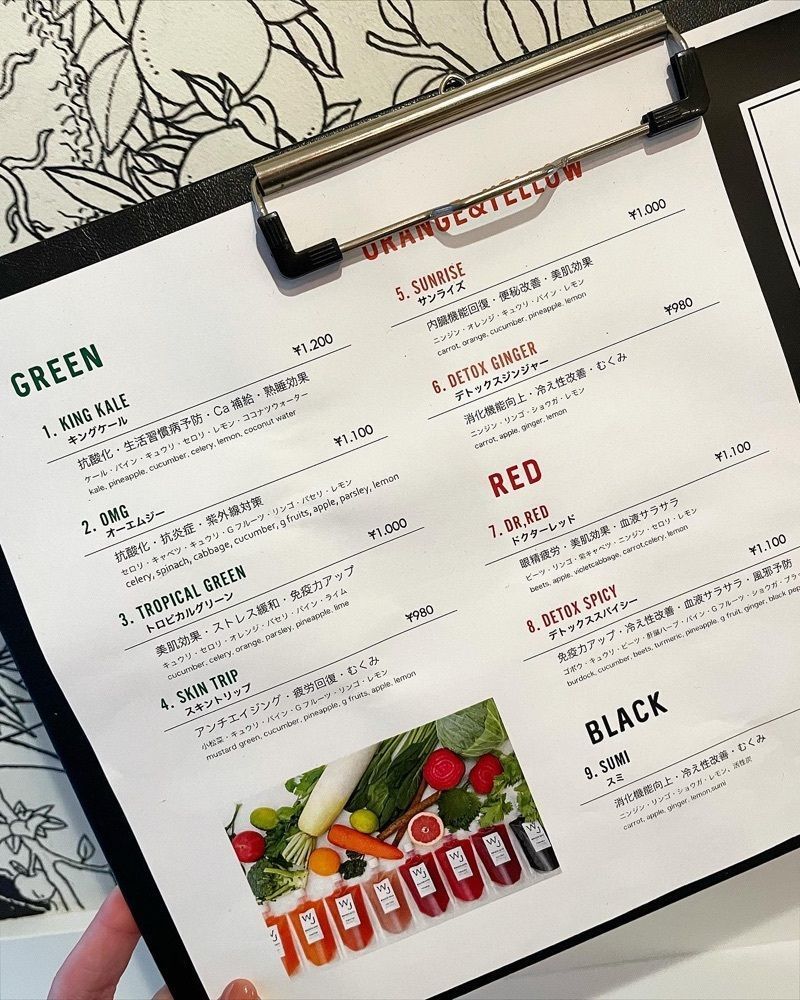 GREEN
¥1.200
1. KING KALE
キングケール
抗酸化・生活習慣病予防・Ca 補給・熟睡効果
ケール・パイン・キュウリ・セロリ・レモン・ココナツウォーター
kale, pineapple, cucumber, celery, lemon, coconut water
¥1.100
2. OMG
オーエムジー
抗酸化・抗炎症・紫外線対策
セロリ・キャベツ・キュウリ・Gフルーツ・リンゴ・パセリ・レモン
celery, spinach, cabbage, cucumber, g fruits, apple, parsley, lemon
¥1.000
3. TROPICAL GREEN
トロピカルグリーン
美肌効果・ストレス緩和・免疫力アップ
キュウリ・セロリ・オレンジ・パセリ・パイン・ライム
cucumber, celery, orange, parsley, pineapple, lime
¥980
4. SKIN TRIP
スキントリップ
アンチエイジング・疲労回復・むくみ
小松菜・キュウリ・パイン・Gフルーツ・リンゴ・レモン
mustard green, cucumber, pineapple, g fruits, apple, lemon
ORANGE&YELLOW
¥1.000
5. SUNRISE
サンライズ
内臓機能回復・便秘改善・美肌効果
ニンジン・オレンジ・キュウリ・パイン・レモン
carrot, orange, cucumber, pineapple, lemon
¥980
6. DETOX GINGER
デトックスジンジャー
消化機能向上・冷え性改善・むくみ
ニンジン・リンゴ・ショウガ・レモン
carrot, apple, ginger, lemon
RED
¥1.100
7. DR,RED
ドクターレッド
眼精疲労・美肌効果・血液サラサラ
ビーツ・リンゴ・紫キャベツ・ニンジン・セロリ・レモン
beets, apple, violetcabbage, carrot,celery, lemon
¥1.100
8. DETOX SPICY
デトックススパイシー
免疫力アップ・冷え性改善・血液サラサラ・風邪予防
ゴボウ・キュウリ・ビーツ・肝臓ハーブ・パイン・Gフルーツ・ショウガ・ブラ
burdock, cucumber, beets, turmeric, pineapple, g fruit, ginger, black pep
BLACK
9. SUMI
スミ
消化機能向上・冷え性改善・むくみ
ニンジン・リンゴ・ショウガ・レモン、活性炭
carrot, apple, ginger, lemon,sumi
WJ
WJ
WJ
WJ
WJ
WJ
WJ